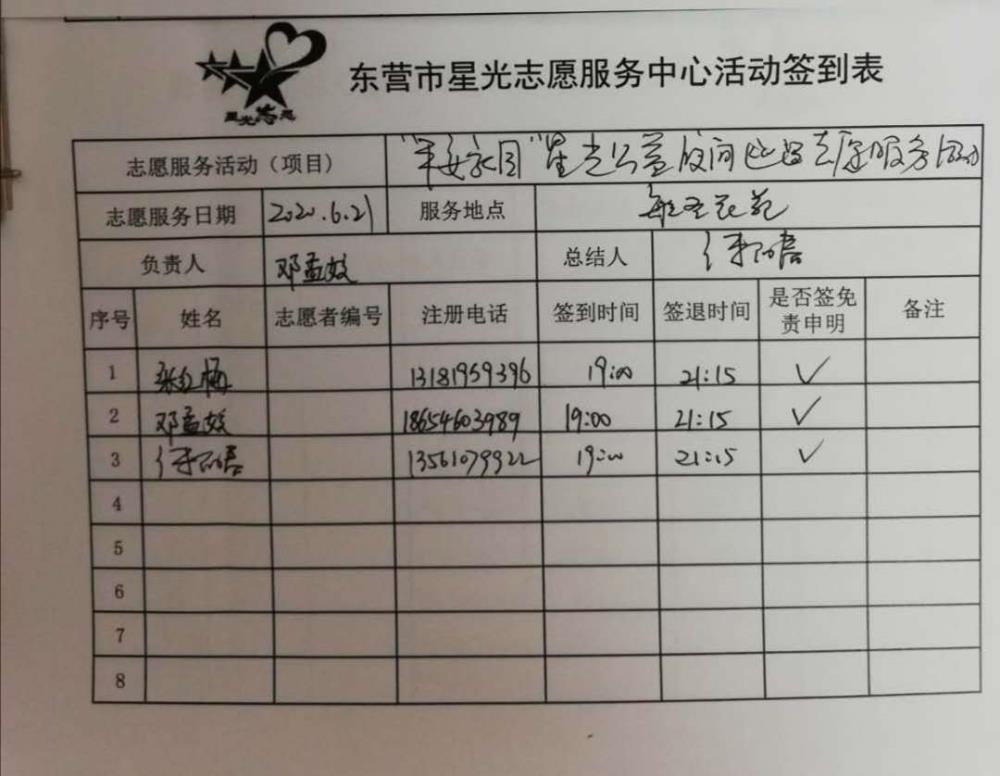 星光志愿
东营市星光志愿服务中心活动签到表
志愿服务活动（项目） "平安家园"星光公益夜间巡逻志愿服务活动
志愿服务日期 2020.6.21 服务地点 花苑
负责人 邓孟姣 总结人
序号 姓名 志愿者编号 注册电话 签到时间 签退时间 是否签免责申明 备注
1 张红梅 13181959396 19:00 21:15 ✓
2 邓孟姣 18654603989 19:00 21:15 ✓
3 13561079922 19:00 21:15 ✓
4
5
6
7
8